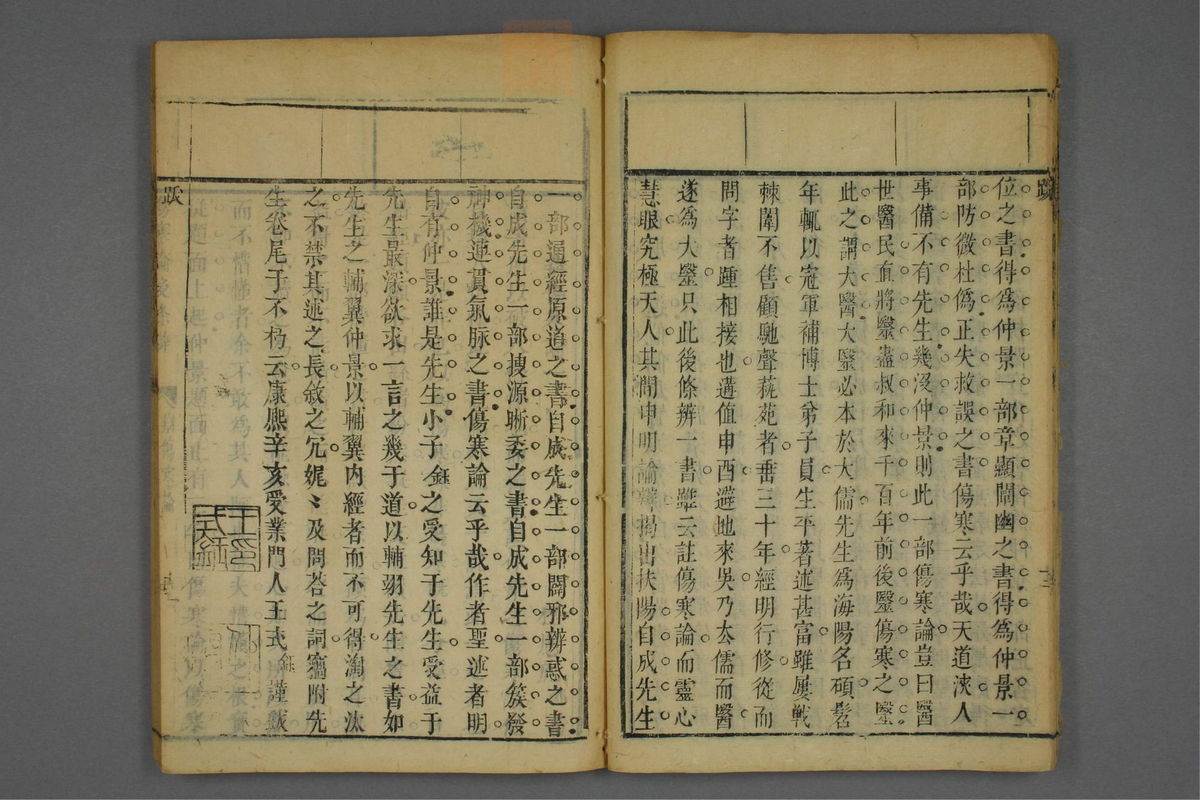 跋
位之書得爲仲景一部章顯闡幽之書得爲仲景一
部防微杜爲正失救誤之書傷寒云乎哉天道浹人
事備不有先生幾沒仲景則此一部傷寒論豈曰醫
世醫民直將毉盡叔和來千百年前後毉傷寒之毉
此之謂大醫大毉必本於大儒先生爲海陽名碩髫
年輒以冠軍補博士弟子員生平著述甚富雖屢戰
棘闈不售顧馳聲蓺苑者垂三十年經明行修從而
問字者踵相接也遘值申酉避地來吳乃厺儒而醫
遂爲大毉只此後條辨一書雖云註傷寒論而靈心
慧眼究極天人其間申明論辯揭出扶陽自成先生
一部通經原道之書自成先生一部闢邪辨惑之書
自成先生一部搜源晰委之書自成先生一部簇發
神機連貫氣脉之書傷寒論云乎哉作者聖述者明
自有仲景誰是先生小子鈺之受知于先生受益于
先生最深欲求一言之幾于道以輔翊先生之書如
先生之輔翼仲景以輔翼內經者而不可得瀹之汰
之不禁其述之長敘之冗娓〻及問荅之詞竊附先
生卷尾于不朽云康熙辛亥受業門人王式鈺謹跋
跋